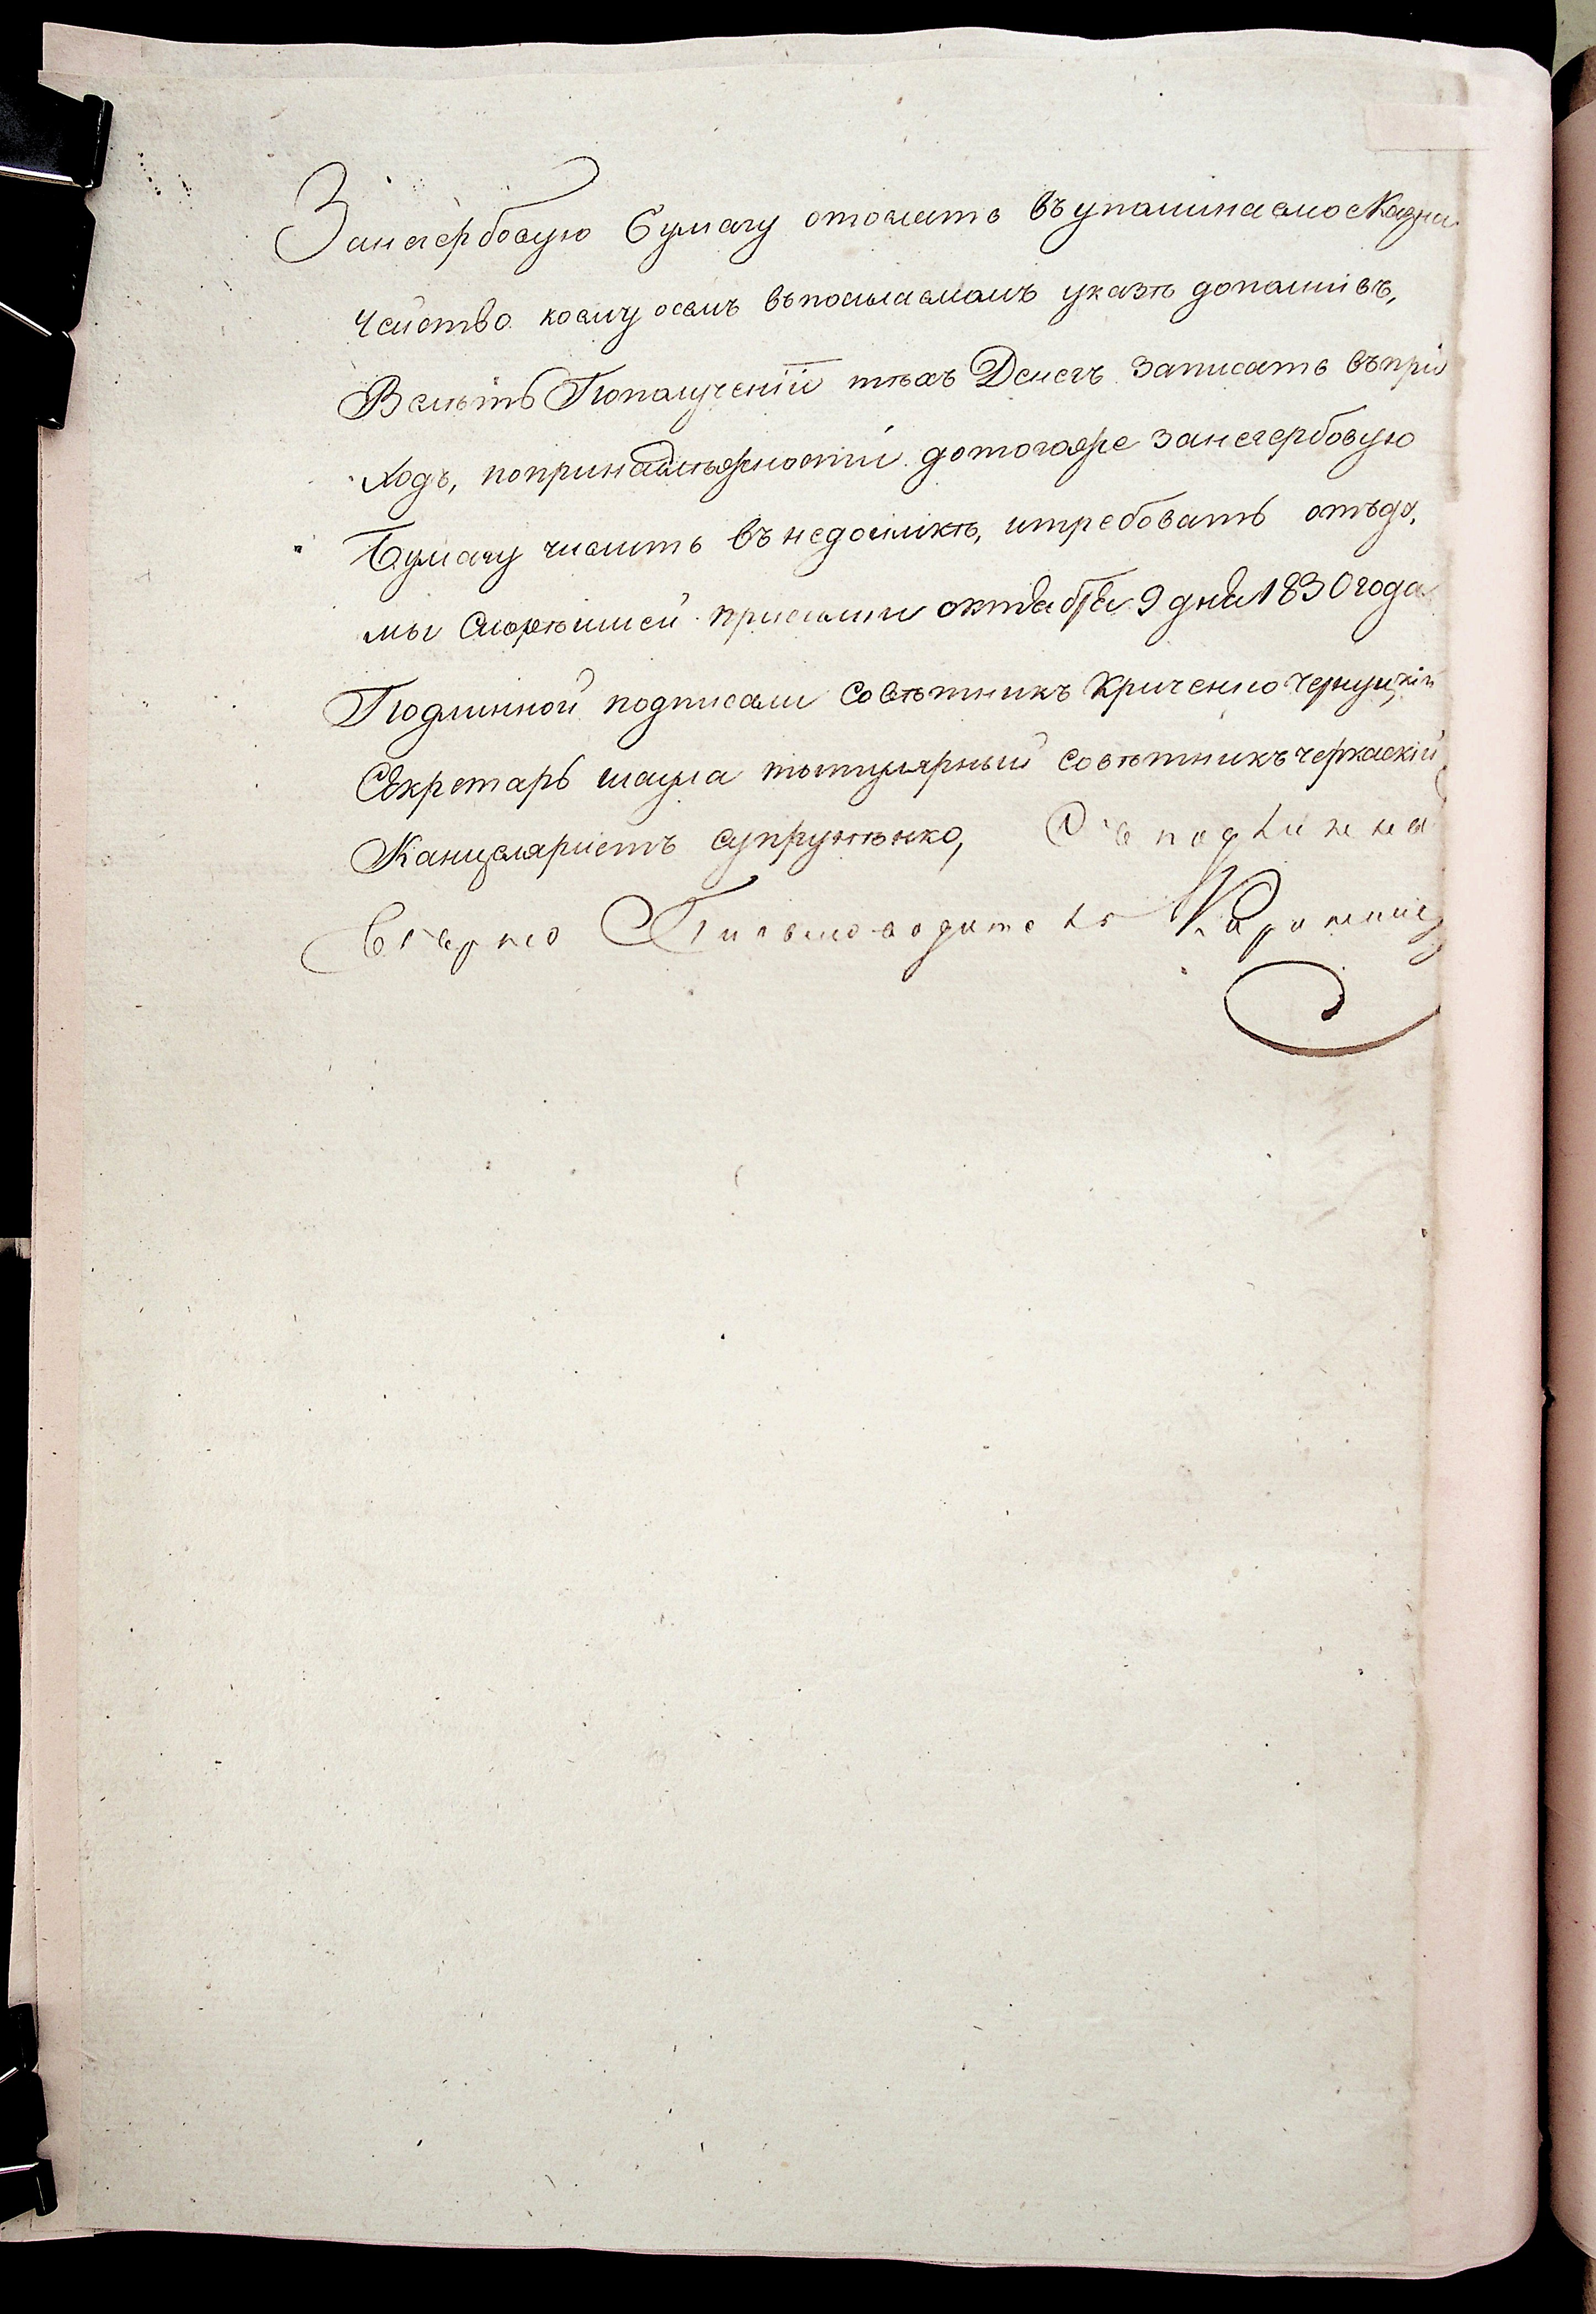 Занегербовую бумагу отослать въупоминаемоеКазна
чейство коему осемъ въпосылаемомъ указѣ дополнивъ,
Велѣть Пополученіи тѣхъ Денегъ записать въпри
ходъ, попринадлѣжности дотогоже занегербовую
Бумагу числить въ недоимкѣ, итребовать отъду.
мы скорѣйшей присылки октября 9 дня 1830 года
Подлинной подписали Совѣтникъ Криченко
Секретарь шаула тытулярный совѣтникъ черкаскій
Канцеляристъ супрунѣнко, Съ подлиннымъ
Вѣрно Письмоводитель